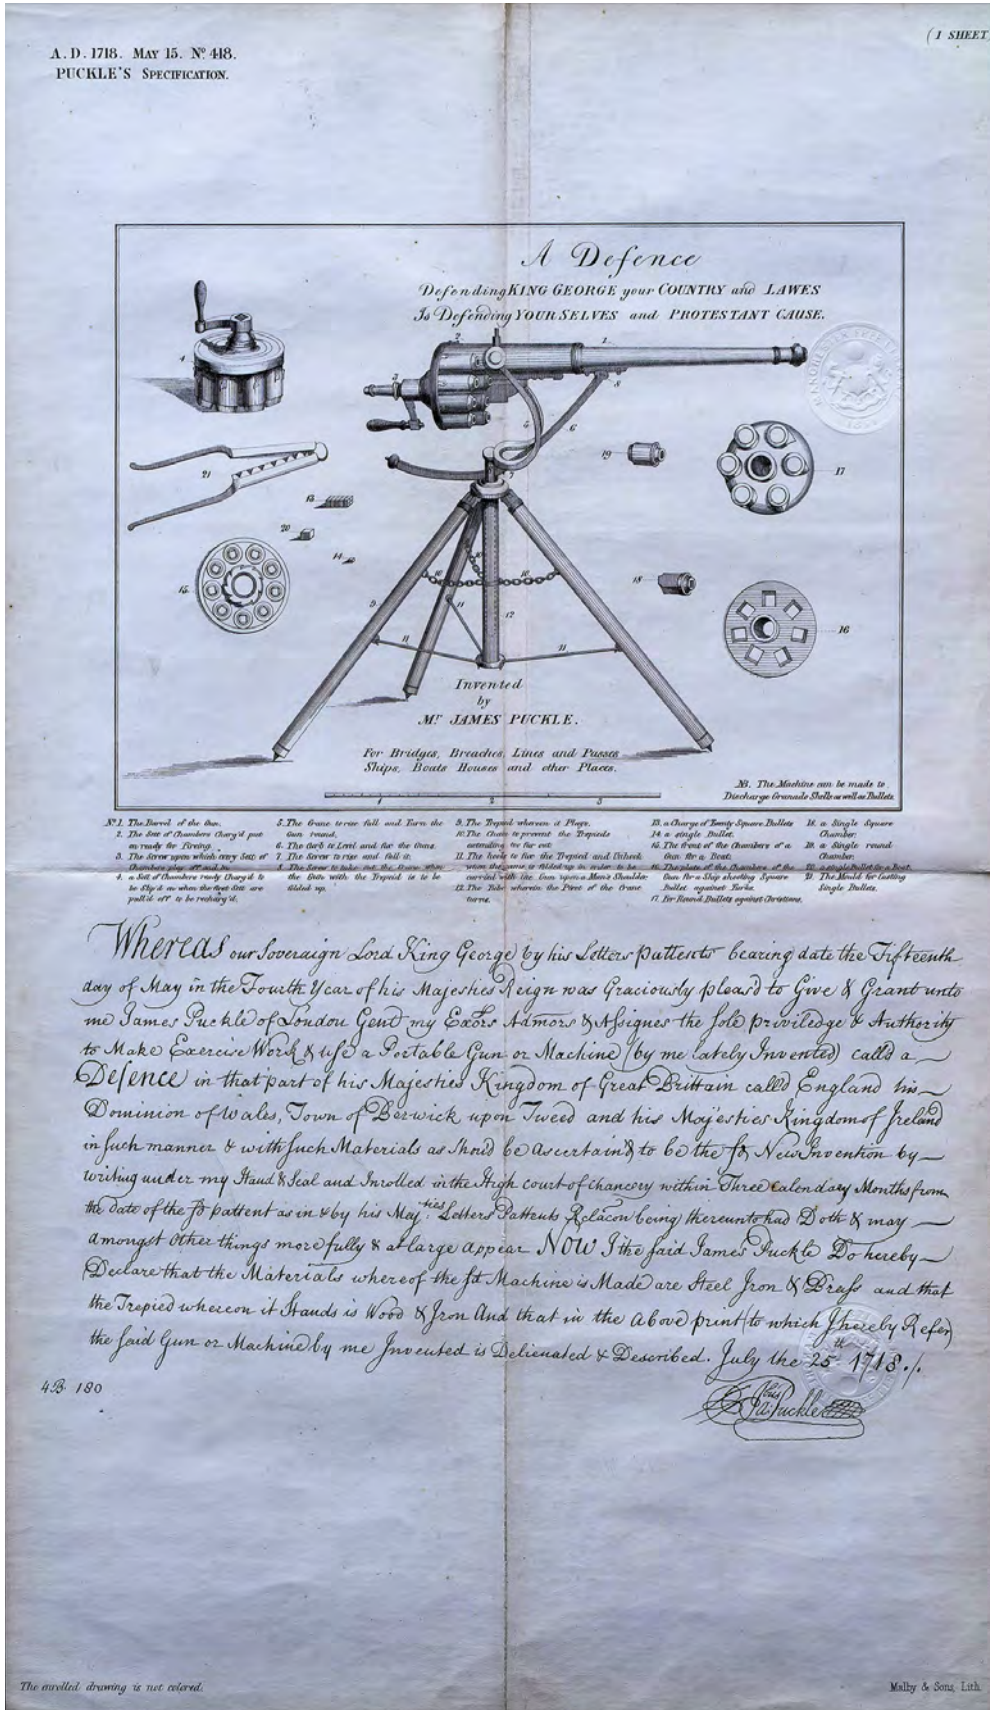 A.D. 1718. MAY 15. Nº 418.
PUCKLE'S SPECIFICATION.
(1 SHEET
A Defence
Defending KING GEORGE your COUNTRY and LAWES
Is Defending YOUR SELVES and PROTESTANT CAUSE.
Invented
by
Mr. JAMES PUCKLE.
For Bridges, Breaches, Lines and Passes
Ships, Boats Houses and other Places.
NB. The Machine can be made to
Discharge Granado Shells as well as Bullets.
1 2 3
Nº 1. The Barrel of the Gun.
2. The Sett of Chambers Charg'd put
on ready for Firing.
3. The Screw upon which every Sett of
Chambers play off and on.
4. a Sett of Chambers ready Charg'd to
be Slip'd on when the first Sett are
pull'd off to be recharg'd.
5. The Crane to rise fall and Turn the
Gun round.
6. The Curb to Level and fix the Guns.
7. The Screw to rise and fall it.
8. The Screw to take out the Crane when
the Gun with the Trepied is to be
folded up.
9. The Trepied whereon it Plays.
10. The Chain to prevent the Trepieds
extending too far out.
11. The hooks to fix the Trepied and Unhook
when the same is folded up in order to be
carried with the Gun upon a Man's Shoulder.
12. The Tube wherein the Pivot of the Crane
turns.
13. a Charge of Twenty Square Bullets
14. a single Bullet.
15. The front of the Chambers of a
Gun for a Boat.
16. The plate of the Chambers of the
Gun for a Ship shooting Square
Bullets against Turks.
17. For Round Bullets against Christians.
18. a Single Square
Chamber.
19. a Single round
Chamber.
20. a single Bullet for a Boat.
21. The Mould for Casting
Single Bullets.
Whereas our Soveraign Lord King George by his Letters pattents bearing date the Fifteenth
day of May in the Fourth Year of his Majesties Reign was Graciously pleas'd to Give & Grant unto
me James Puckle of London Gent my Exors Admors & Assignes the sole priviledge & Authority
to Make Exercise Work & use a Portable Gun or Machine (by me lately Invented) call'd a
Defence in that part of his Majesties Kingdom of Great Brittain call'd England his
Dominion of Wales, Town of Berwick upon Tweed and his Majesties Kingdom of Ireland
in such manner & with such Materials as shou'd be ascertain'd to be the sd New Invention by
writing under my Hand & Seal and Inrolled in the High court of chancery within Three calendary Months from
the date of the sd pattent as in & by his Majties Letters Pattents Relacon being thereunto had Doth & may
amongst Other things more fully & at large appear NOW I the said James Puckle Do hereby
Declare that the Materials whereof the sd Machine is Made are Steel Iron & Brass and that
the Trepied whereon it Stands is Wood & Iron And that in the above print (to which I hereby Refer)
the said Gun or Machine by me Invented is Delienated & Described. July the 25th 1718./.
Ja: Puckle
4B 180
The enrolled drawing is not colored.
Malby & Sons, Lith.